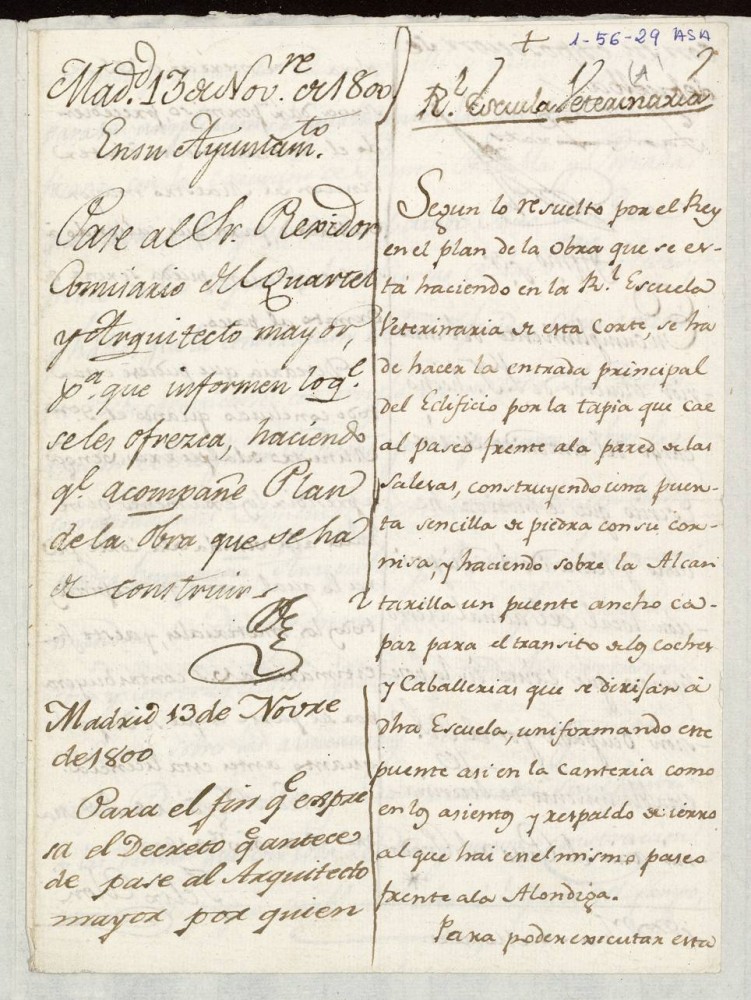 1-56-29 ASA
Mad.d 13 de Nov.re de 1800
En su Ayuntam.to
Pase al Sr. Rexidor
Comisario del Quartel
y Arquitecto mayor,
p.a que informen lo q.e
se les ofrezca, haciendo
q.e acompañe Plan
de la obra que se ha
de construir.
Madrid 13 de Novre
de 1800
Para el fin q.e expre
sa el Decreto q.e antece
de pase al Arquitecto
mayor por quien
R.l Escuela Veterinaria
Segun lo resuelto por el Rey
en el plan de la obra que se es-
tá haciendo en la R.l Escuela
Veterinaria de esta Corte, se ha
de hacer la entrada principal
del Edificio por la tapia que cae
al paseo frente a la pared de las
Salesas, construyendo una puer-
ta sencilla de piedra con su cor-
nisa, y haciendo sobre la Alcan
tarilla un puente ancho ca-
paz para el transito de los coches
y Caballerias que se dirijan à
dha Escuela, uniformando este
puente asi en la Canteria como
en los asientos y respaldo de ierro
al que hai en el mismo paseo
frente a la Alondiga.
Para poder executar esta